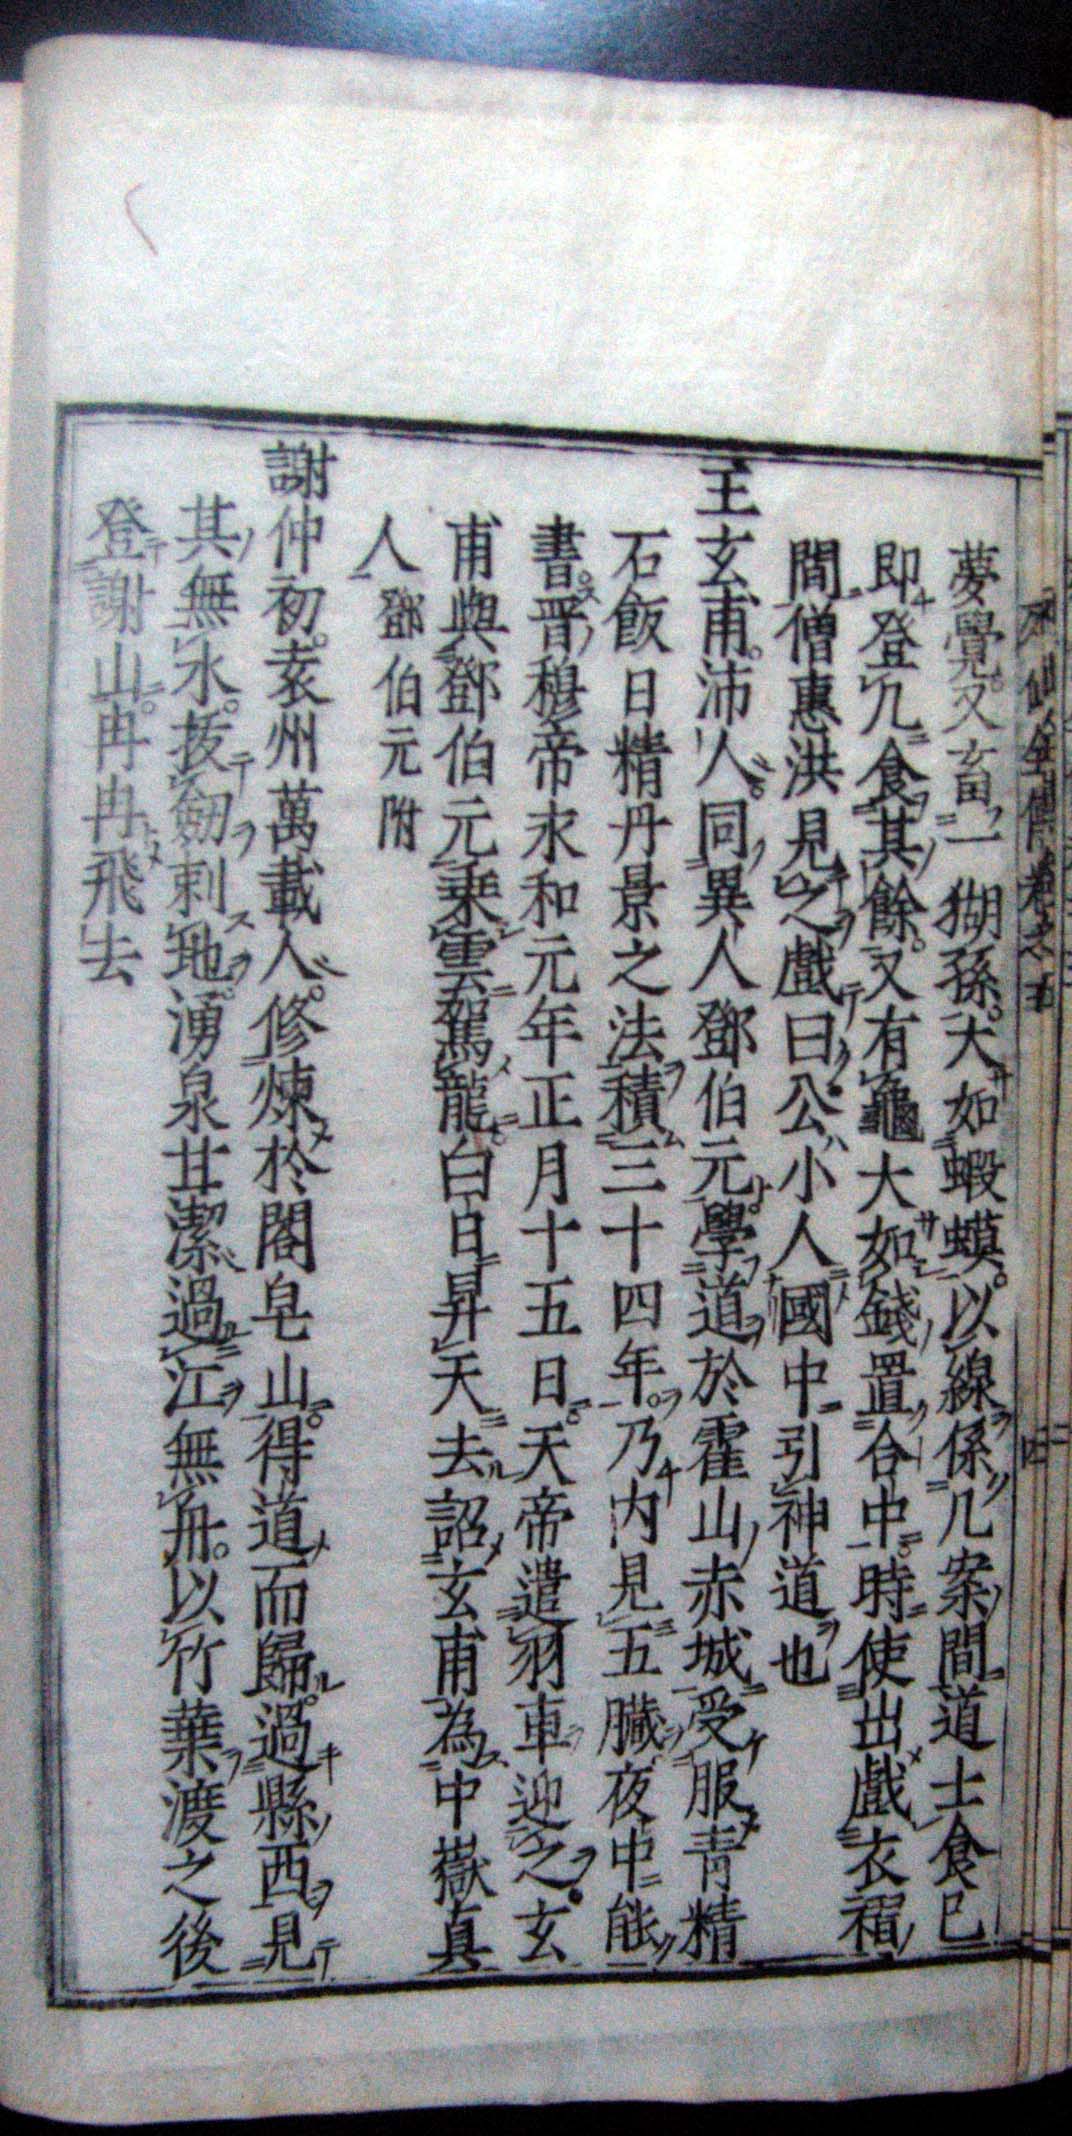 列仙全傳卷之五
四
夢覺。又畜一猢孫。大如蝦蟆。以線係几案間道士食已
即登几食其餘。又有龜大如錢置合中。時使出戲衣褶
間僧惠洪見之戲曰公小人國中引神道也
王玄甫。沛人。同異人鄧伯元學道於霍山赤城受服青精
石飯日精丹景之法積三十四年。乃内見五臟夜中能
書。晉穆帝永和元年正月十五日。天帝遣羽車迎之。玄
甫與鄧伯元乗雲駕龍白日昇天去詔玄甫為中嶽真
人 鄧伯元附
謝仲初。袁州萬載人。修煉於閤皂山。得道而歸。過縣西見
其無水。拔劔刺地。湧泉甘潔過江無舟。以竹葉渡之後
登謝山。冉冉飛去